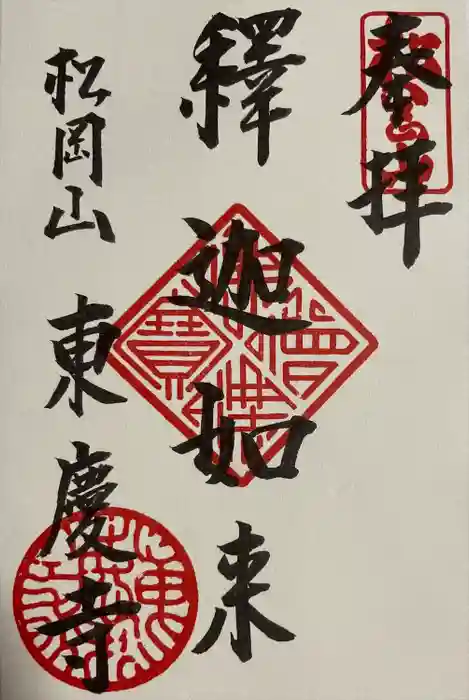 奉拝
釋迦如来
松岡山
東慶寺